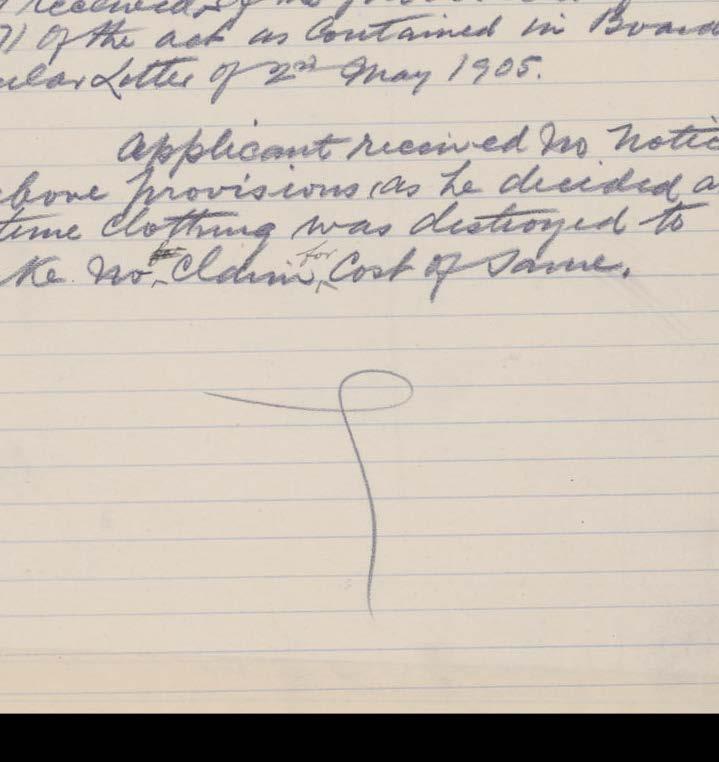 received, of the
71 of the act as Contained in Board
ular Letter of 2nd May 1905.
Applicant received no notic
bove provisions, as he decided a
time clothing was destroyed to
ke no Claim for Cost of Same.